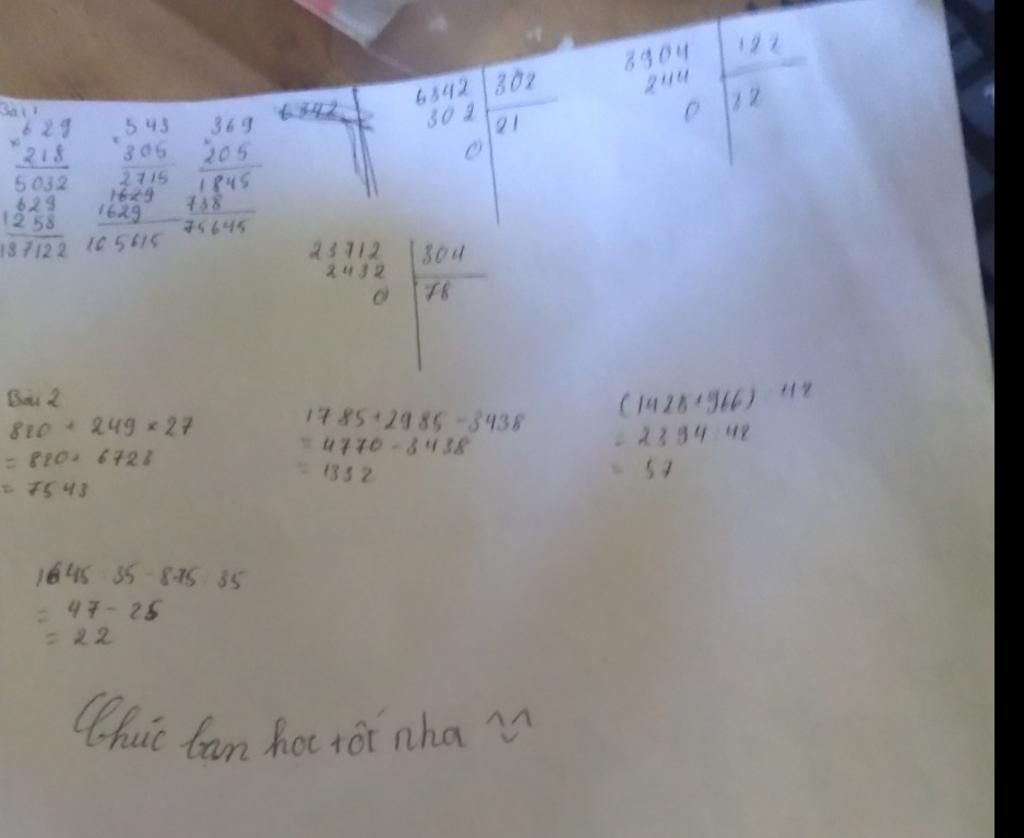 Bài 1
629
×
218
5032
629
1258
137122
543
×
305
2715
1629
1629
165615
369
×
205
1845
738
75645
6342
6342 302
302 21
0
3904 122
244 32
0
23712 304
2432 78
0
Bài 2
820 + 249 × 27
= 820 + 6723
= 7543
1785 + 2985 - 3438
= 4770 - 3438
= 1332
(1428 + 966) : 42
= 2394 : 42
= 57
1645 : 35 - 875 : 35
= 47 - 25
= 22
Chúc bạn học tốt nha ^^